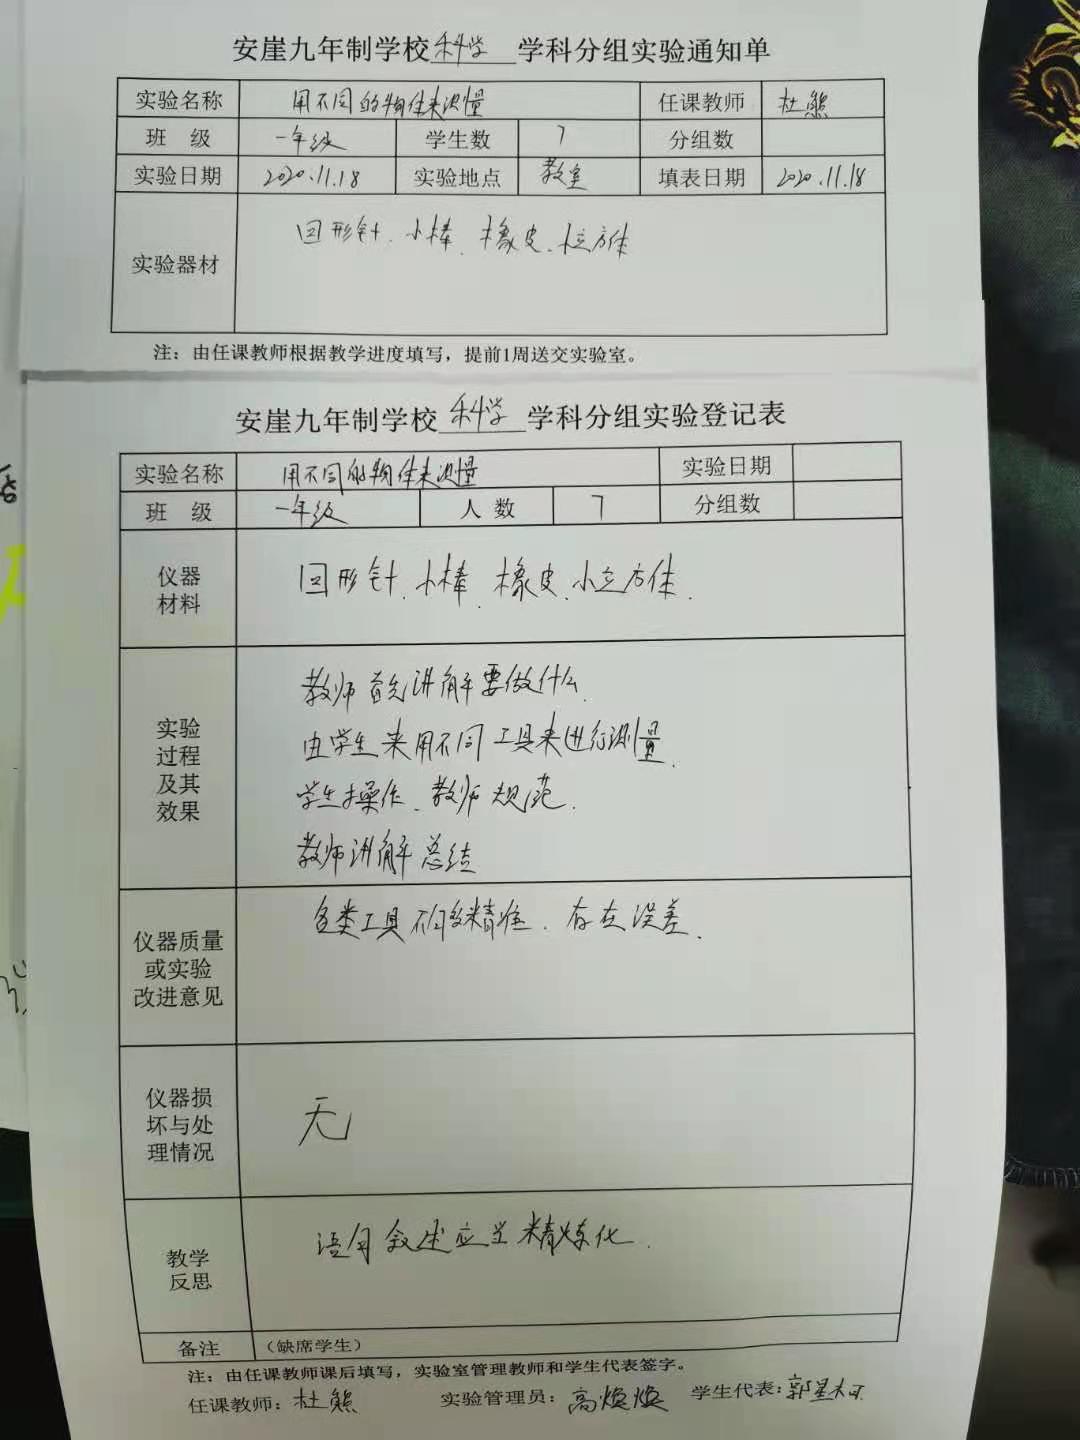 安崖九年制学校科学学科分组实验通知单
实验名称 用不同的物体来测量 任课教师 杜熊
班 级 一年级 学生数 7 分组数
实验日期 2020.11.18 实验地点 教室 填表日期 2020.11.18
实验器材 回形针、小棒、橡皮、小立方体
注：由任课教师根据教学进度填写，提前1周送交实验室。
安崖九年制学校科学学科分组实验登记表
实验名称 用不同的物体来测量 实验日期
班 级 一年级 人 数 7 分组数
仪器
材料
回形针、小棒、橡皮、小立方体.
实验
过程
及其
效果
教师首先讲解要做什么.
由学生来用不同工具来进行测量.
学生操作、教师规范.
教师讲解总结
仪器质量
或实验
改进意见
各类工具不够精准、存在误差.
仪器损
坏与处
理情况
无
教学
反思
语句叙述应当精炼化.
备注 （缺席学生）
注：由任课教师课后填写，实验室管理教师和学生代表签字。
任课教师：杜熊 实验管理员：高焕焕 学生代表：郭星